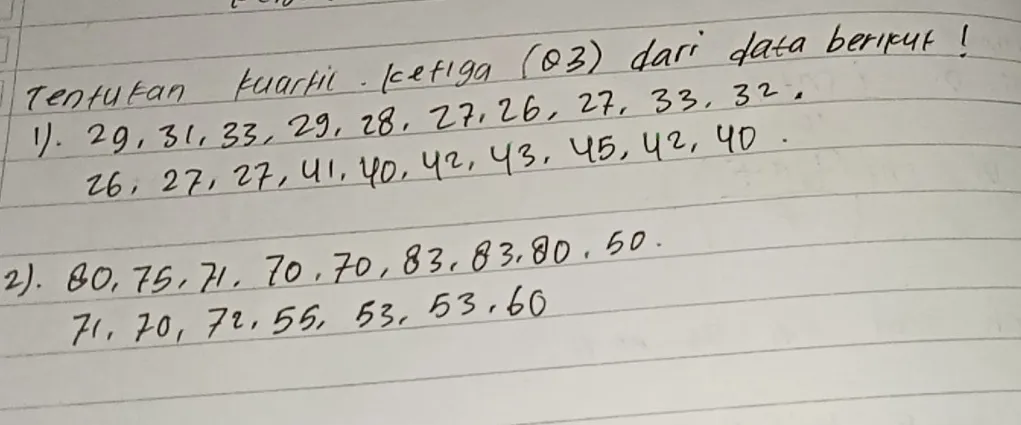 Tentukan kuartil ketiga (Q3) dari data berikut !
1). 29, 31, 33, 29, 28, 27, 26, 27, 33, 32,
26, 27, 27, 41, 40, 42, 43, 45, 42, 40.
2). 80, 75, 71, 70, 70, 83, 83, 80, 50.
71, 70, 72, 55, 53, 53, 60